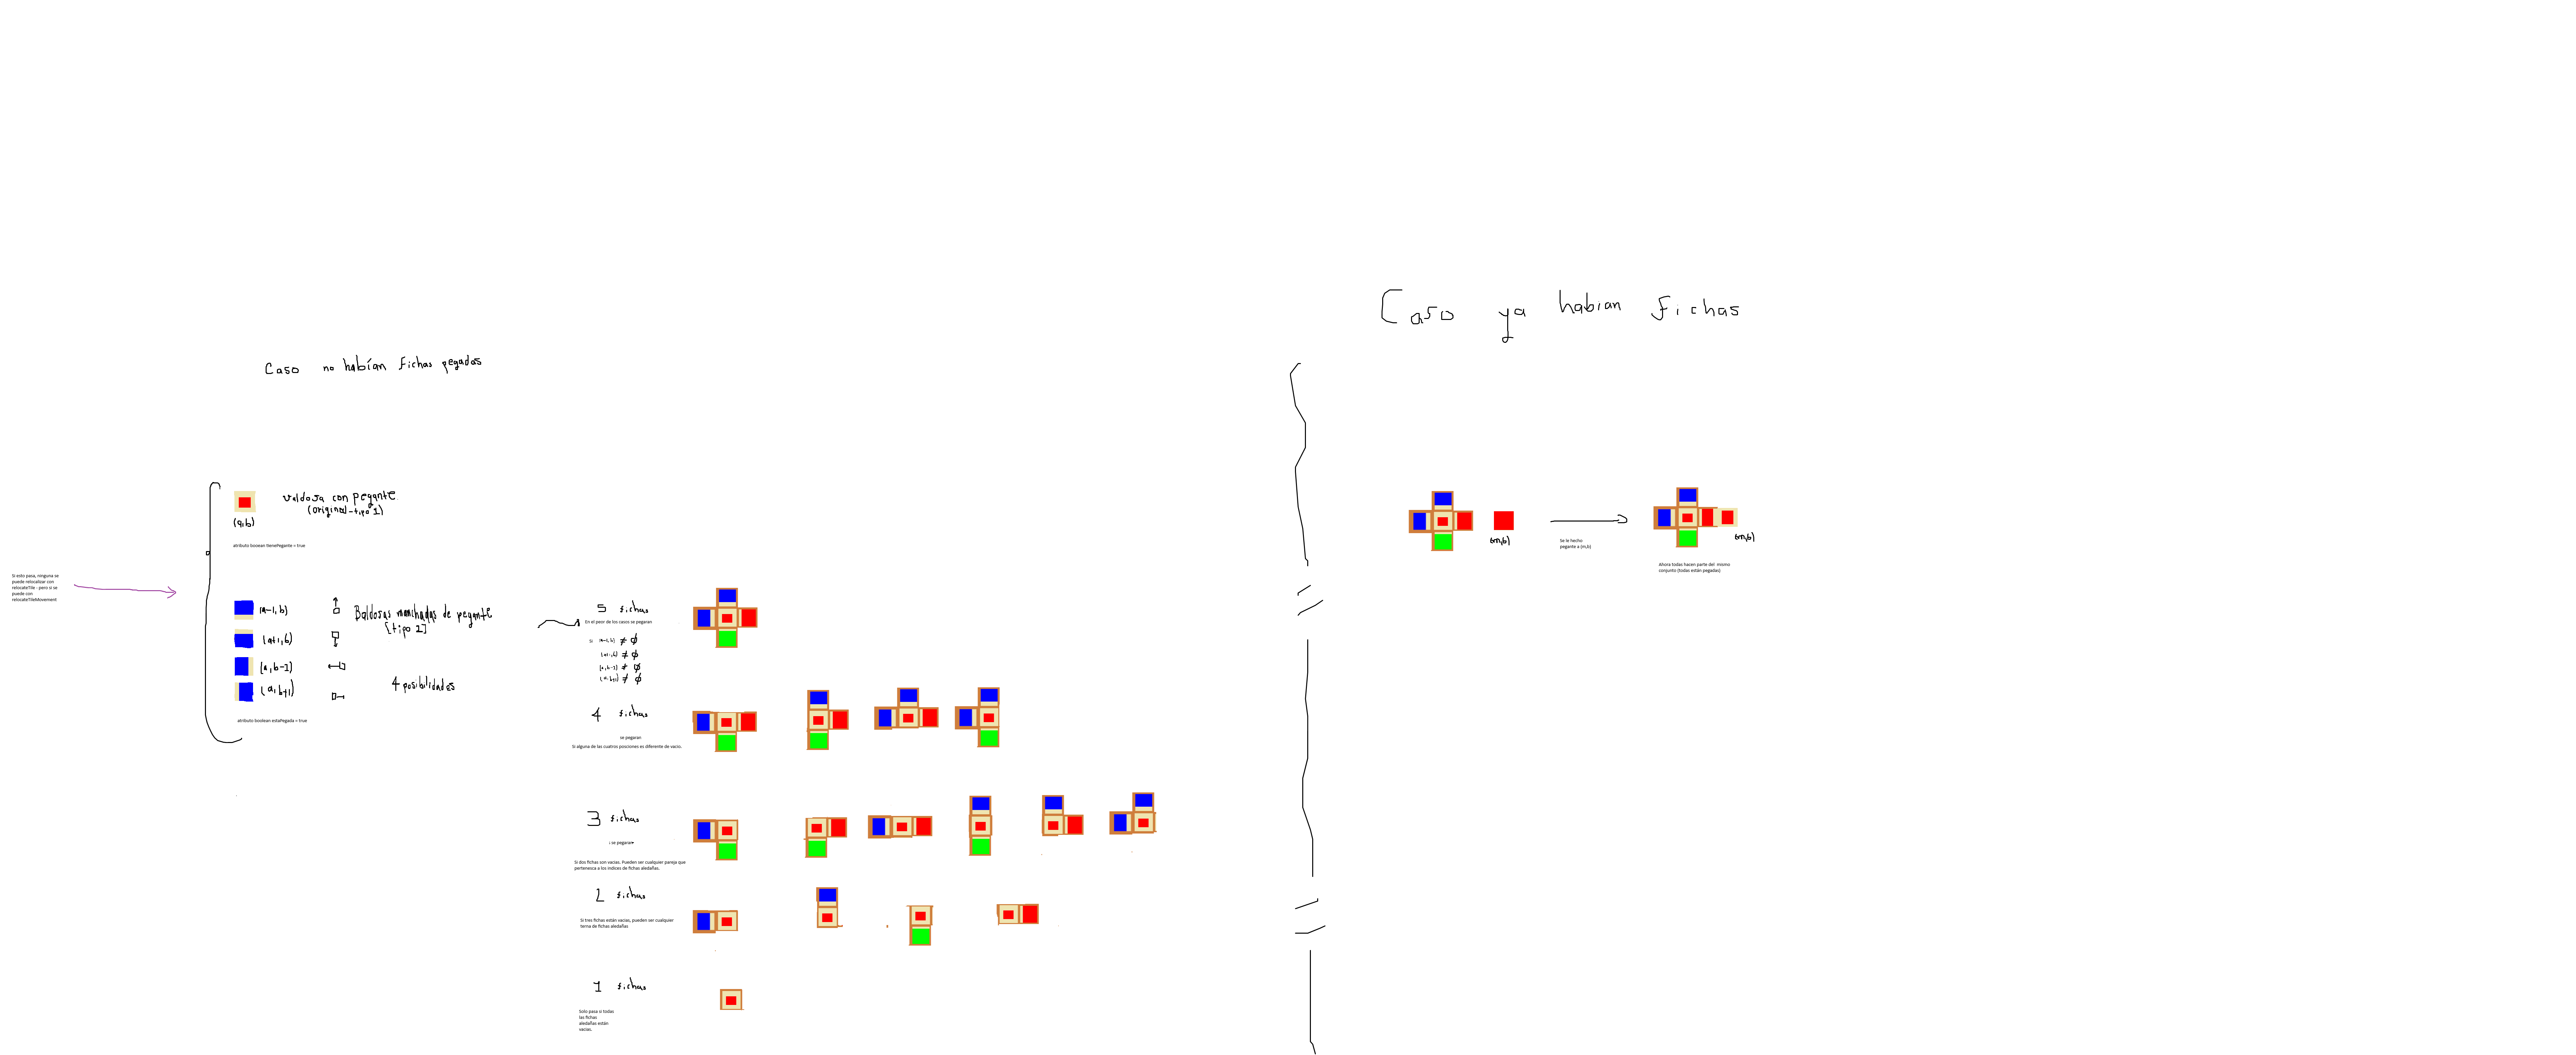 Caso no habían fichas pegadas
Si esto pasa, ninguna se
puede relocalizar con
relocateTile - pero si se
puede con
relocateTileMovement
valdosa con pegante
(original-tipo 1)
(a,b)
atributo booean tienePegante = true
(a-1, b)
(a+1, b)
(a, b-1)
(a, b+1)
Baldosas manchadas de pegante
[tipo 2]
4 posibilidades
atributo boolean estaPegada = true
5 fichas
En el peor de los casos se pegaran
Si (a-1, b) ≠ ∅
(a+1, b) ≠ ∅
(a, b-1) ≠ ∅
(a, b+1) ≠ ∅
4 fichas
se pegaran
Si alguna de las cuatros posciones es diferente de vacio.
3 fichas
se pegaran
Si dos fichas son vacias. Pueden ser cualquier pareja que
pertenesca a los indices de fichas aledañas.
2 fichas
Si tres fichas están vacias, pueden ser cualquier
terna de fichas aledañas
1 fichas
Solo pasa si todas
las fichas
aledañas están
vacias.
Caso ya habian fichas
(m,b)
Se le hecho
pegante a (m,b)
(m,b)
Ahora todas hacen parte del mismo
conjunto (todas están pegadas)